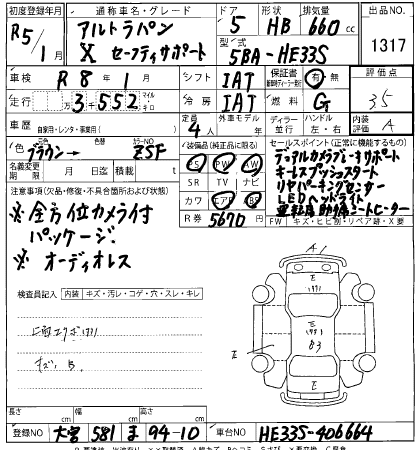 初度登録年月 通称車名・グレード ドア 形状 排気量 出品NO
R5/1 アルトラパン 5 HB 660cc
X セーフティサポート 型式
5BA-HE33S 1317
車検 R8年1月 シフト IAT 保証書 有・無 評価点
走行 3万3552キロ マイル 冷房 IAT 燃料 G 35
車歴 自家用・レンタ・事業用( ) 定員 4人 外車モデル ディーラー 並行 ハンドル 左・右 内装 A
色 ブラウン→ 色替 カラーNO ZSF 装備品(純正品に限る) セールスポイント(正常に機能するもの)
PS PW AC デュアルカメラブレーキサポート
名義変更期限 月 日迄 積載 t SR TV ナビ キーレスプッシュスタート
注意事項(欠品・修復・不具合箇所および状態) カワ エアB ABS リヤパーキングセンサー
LEDヘッドライト
R券 5670 運転席助手席シートヒーター
※全方位カメラ付 FW キズ・ヒビ割・リペア跡・X要
パッケージ
※オーディオレス
検査員記入 内装 キズ・汚レ・コゲ・穴・スレ・キレ
A1
E
E
E
E
長さ cm 幅 cm 高さ cm
登録NO 大宮 581 ま 94-10 車台NO HE33S-406664